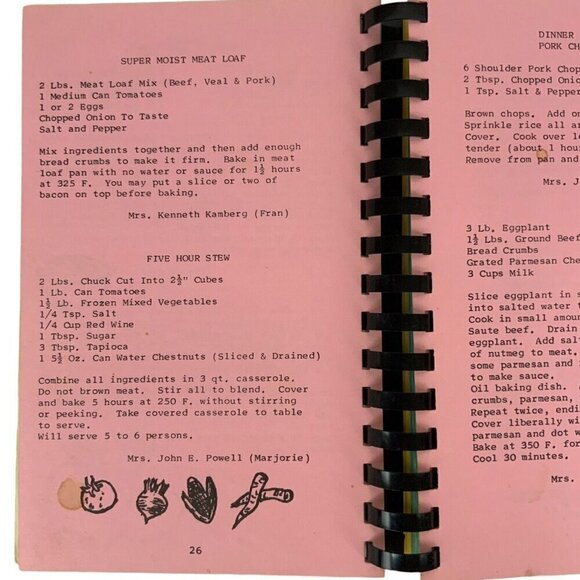 SUPER MOIST MEAT LOAF
2 Lbs. Meat Loaf Mix (Beef, Veal & Pork)
1 Medium Can Tomatoes
1 or 2 Eggs
Chopped Onion To Taste
Salt and Pepper
Mix ingredients together and then add enough
bread crumbs to make it firm. Bake in meat
loaf pan with no water or sauce for 1½ hours
at 325 F. You may put a slice or two of
bacon on top before baking.
Mrs. Kenneth Kamberg (Fran)
FIVE HOUR STEW
2 Lbs. Chuck Cut Into 2½" Cubes
1 Lb. Can Tomatoes
1½ Lb. Frozen Mixed Vegetables
1/4 Tsp. Salt
1/4 Cup Red Wine
1 Tbsp. Sugar
3 Tbsp. Tapioca
1 5½ Oz. Can Water Chestnuts (Sliced & Drained)
Combine all ingredients in 3 qt. casserole.
Do not brown meat. Stir all to blend. Cover
and bake 5 hours at 250 F. without stirring
or peeking. Take covered casserole to table
to serve.
Will serve 5 to 6 persons.
Mrs. John E. Powell (Marjorie)
26
DINNER
PORK CH
6 Shoulder Pork Chop
2 Tbsp. Chopped Onio
1 Tsp. Salt & Pepper
Brown chops. Add on
Sprinkle rice all ar
Cover. Cook over lo
tender (about 1 hour
Remove from pan and
Mrs. J
3 Lb. Eggplant
1½ Lbs. Ground Beef
Bread Crumbs
Grated Parmesan Chee
3 Cups Milk
Slice eggplant in s
into salted water t
Cook in small amoun
Saute beef. Drain
eggplant. Add salt
of nutmeg to meat.
some parmesan and
to make sauce.
Oil baking dish.
crumbs, parmesan,
Repeat twice, endi
Cover liberally wi
parmesan and dot w
Bake at 350 F. for
Cool 30 minutes.
Mrs.